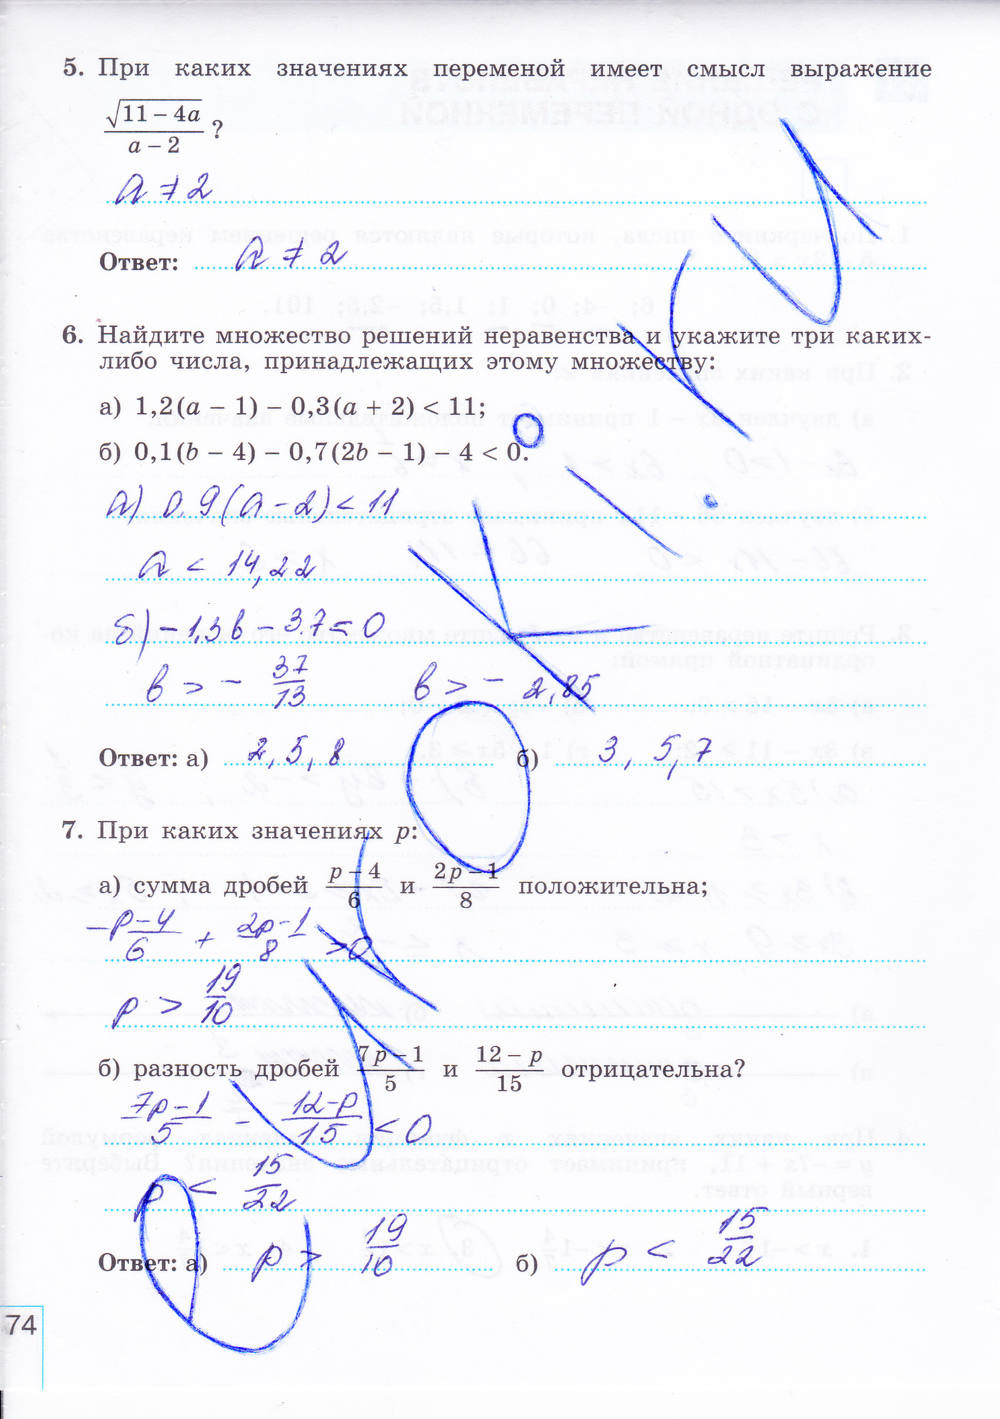 5. При каких значениях переменой имеет смысл выражение
√(11 – 4a) / (a – 2) ?
a ≠ 2
Ответ: a ≠ 2
6. Найдите множество решений неравенства и укажите три каких-
либо числа, принадлежащих этому множеству:
а) 1,2(a – 1) – 0,3(a + 2) < 11;
б) 0,1(b – 4) – 0,7(2b – 1) – 4 < 0.
а) 0.9(a-2) < 11
a < 14,22
б) -1,3b - 3.7 = 0
b > - 37/13 b > - 2,85
Ответ: а) 2, 5, 8 б) 3, 5, 7
7. При каких значениях p:
а) сумма дробей (p – 4)/6 и (2p – 1)/8 положительна;
(p-4)/6 + (2p-1)/8 > 0
p > 19/10
б) разность дробей (7p – 1)/5 и (12 – p)/15 отрицательна?
(7p-1)/5 - (12-p)/15 < 0
p < 15/22
Ответ: а) p > 19/10 б) p < 15/22
74